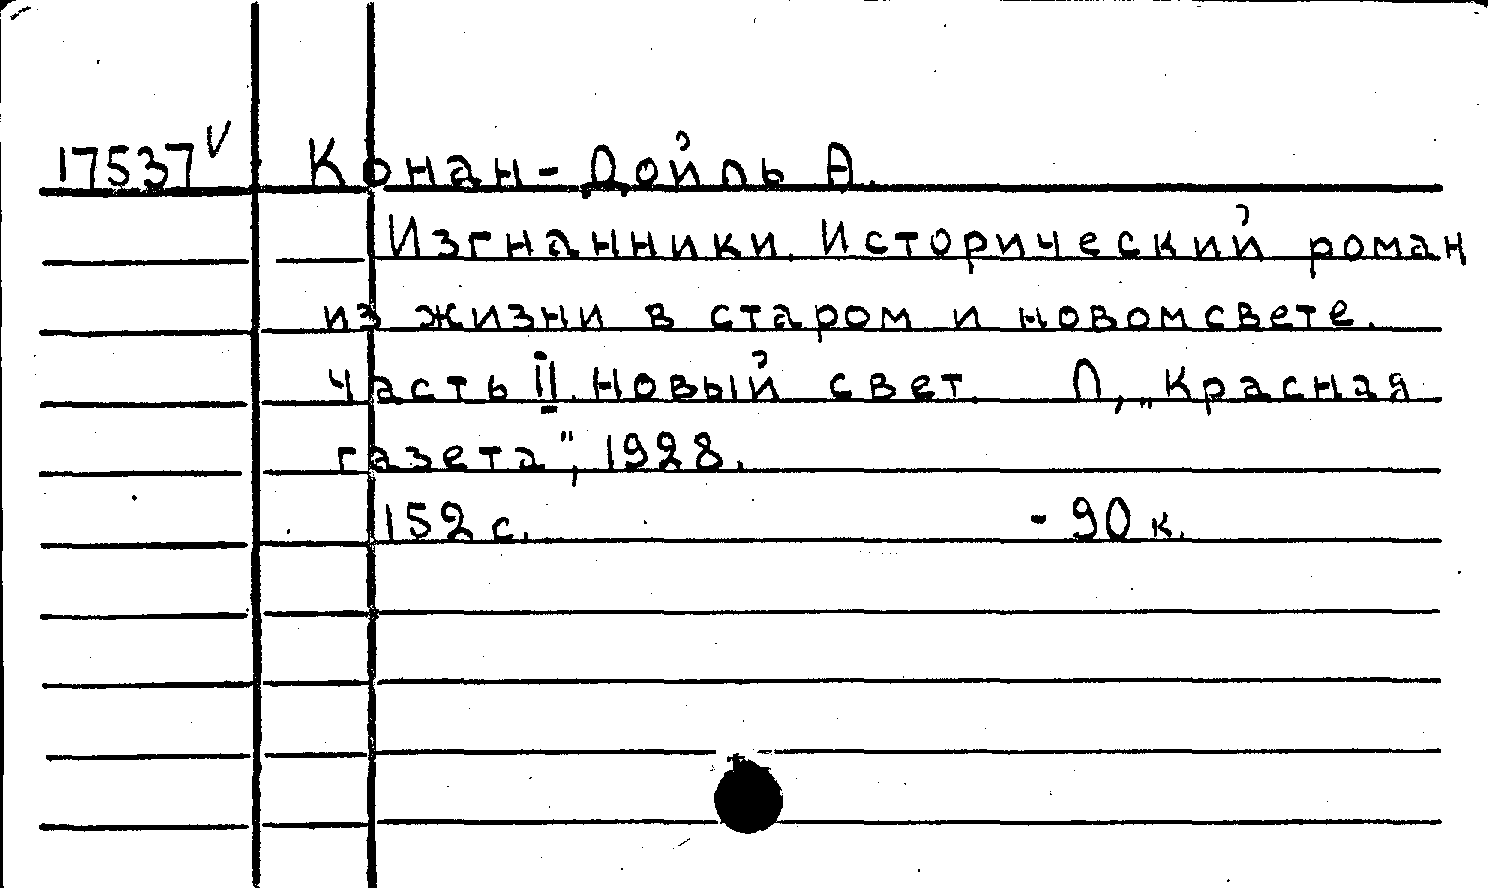 17537 V Конан-Дойль А.
Изгнанники. Исторический роман
из жизни в старом и новом свете.
Часть II. Новый свет. Л, „Красная
газета", 1928.
152 с. - 90 к.